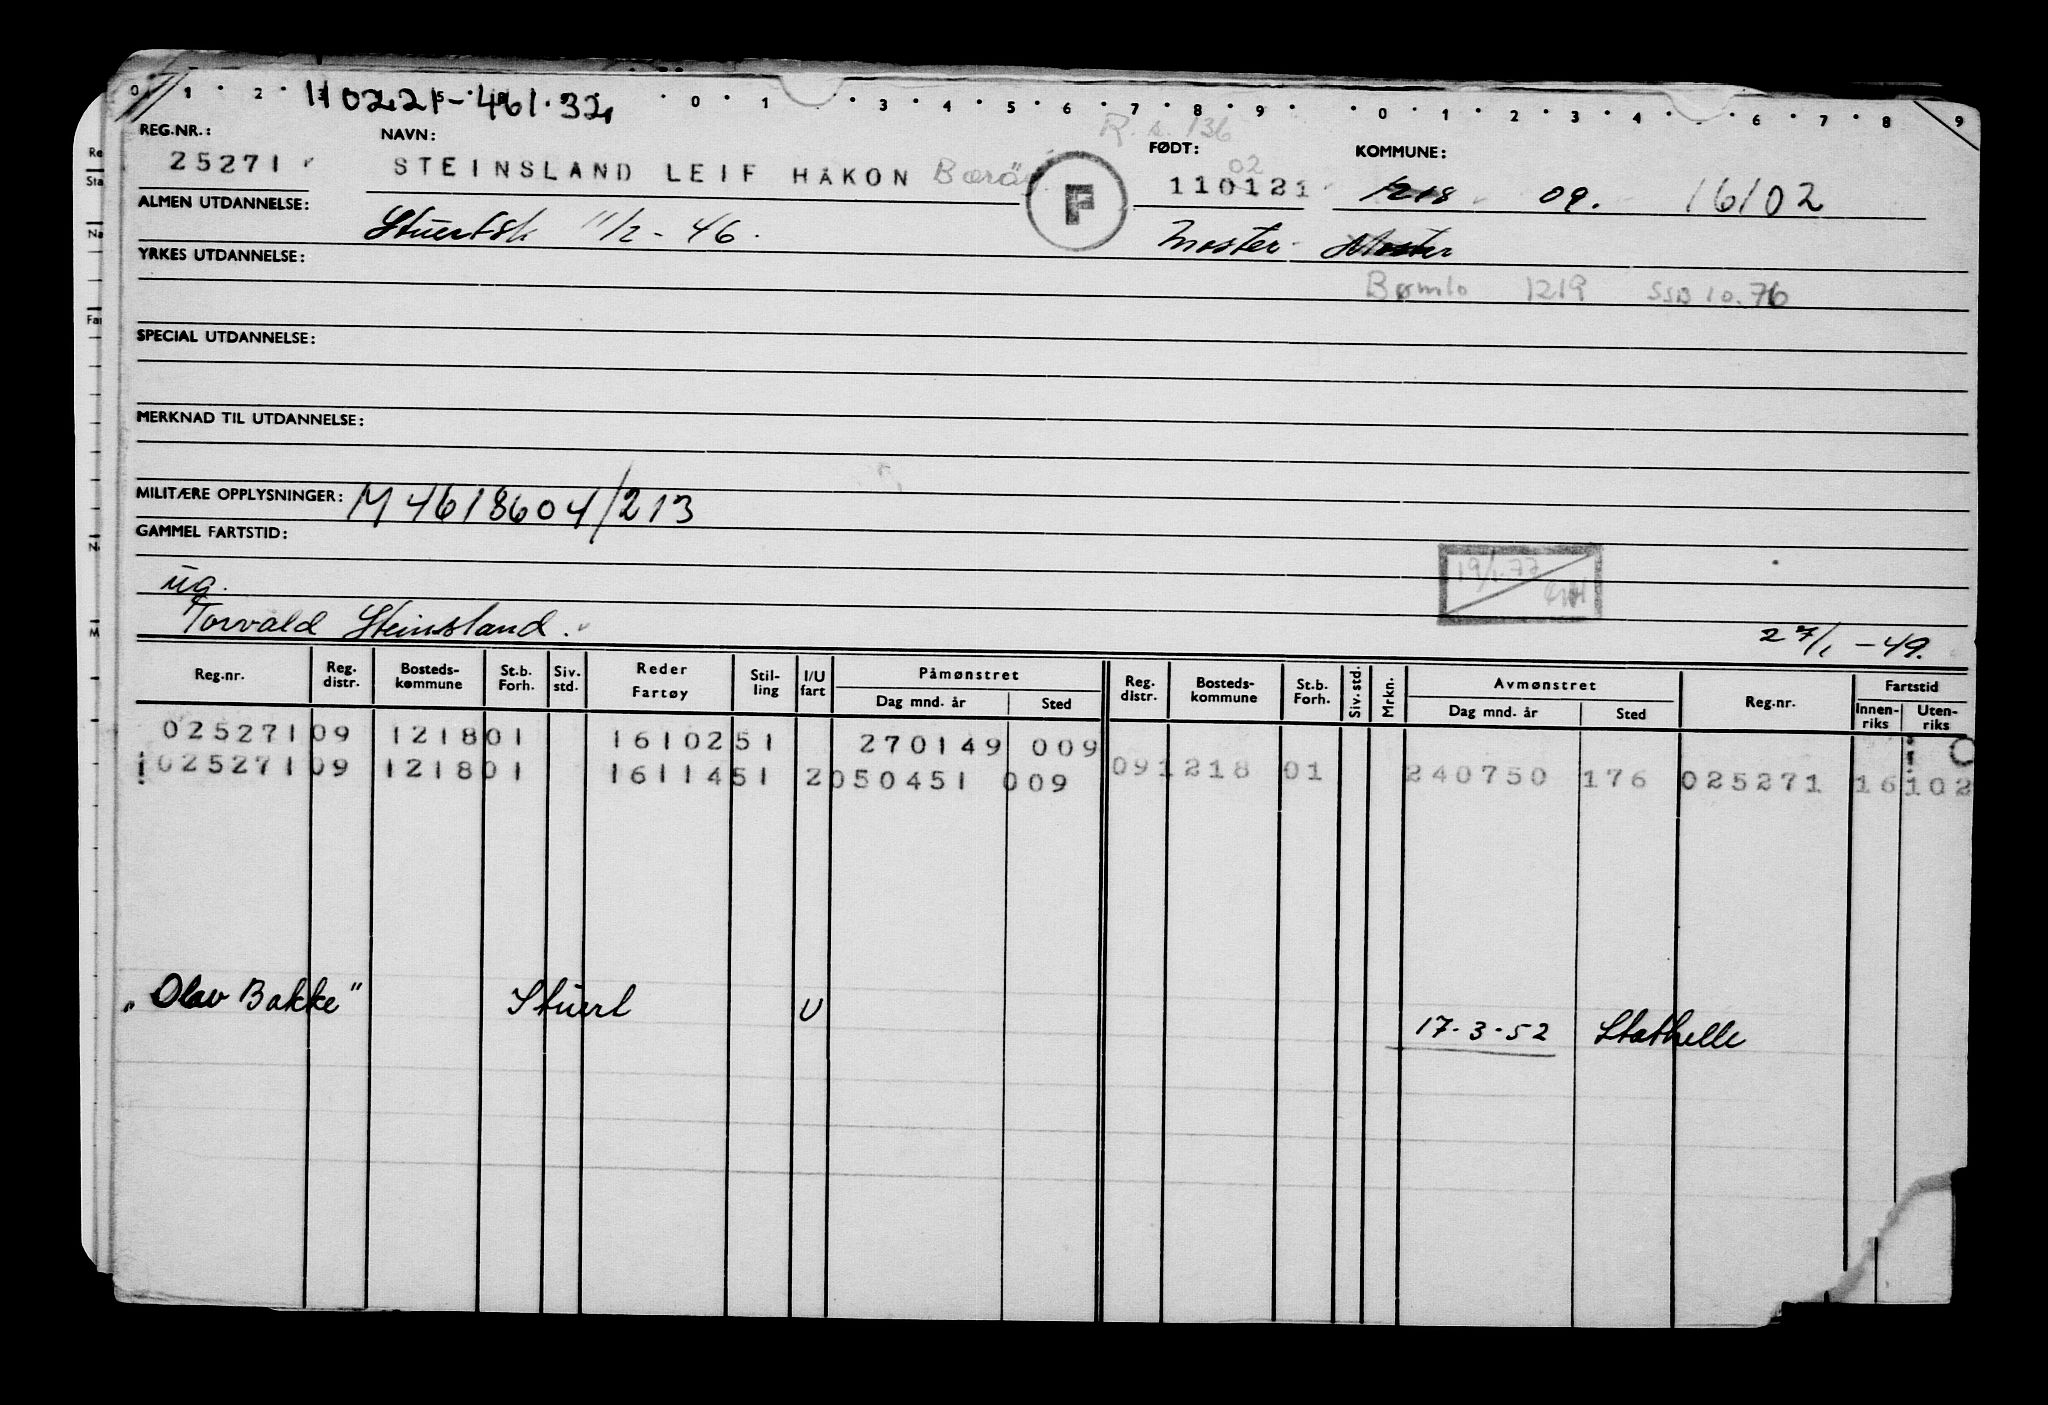 0 1 2 5 0 1 3 4 5 6 7 8 9 0 1 2 3 4 6 7 8 9
110221-461.32
R.s. 136
REG.NR.: NAVN: FØDT: KOMMUNE:
02
25271 STEINSLAND LEIF HÅKON F 110121 1218 09. 16102
ALMEN UTDANNELSE: Stuertsk 11/2-46. Moster Moster
YRKES UTDANNELSE:
Bømlo 1219 SSB 10.76
SPECIAL UTDANNELSE:
MERKNAD TIL UTDANNELSE:
MILITÆRE OPPLYSNINGER: M4618604/213
GAMMEL FARTSTID:
19/1-77
ug.
Torvald Steinsland.
27/1-49.
Reg.nr. Reg. distr. Bosteds-kommune St.b. Forh. Siv. std. Reder Fartøy Stil-ling I/U fart Påmønstret Dag mnd. år Sted Reg. distr. Bosteds-kommune St.b. Forh. Siv. std. Mrkn. Avmønstret Dag mnd. år Sted Reg.nr. Fartstid Innen-riks Uten-riks
025271 09 1218 01 16102 51 270149 009
025271 09 1218 01 16114 51 2 050451 009 09 1218 01 240750 176 025271 16 102
"Olav Bakke" Stuert U
17-3-52 Stathelle